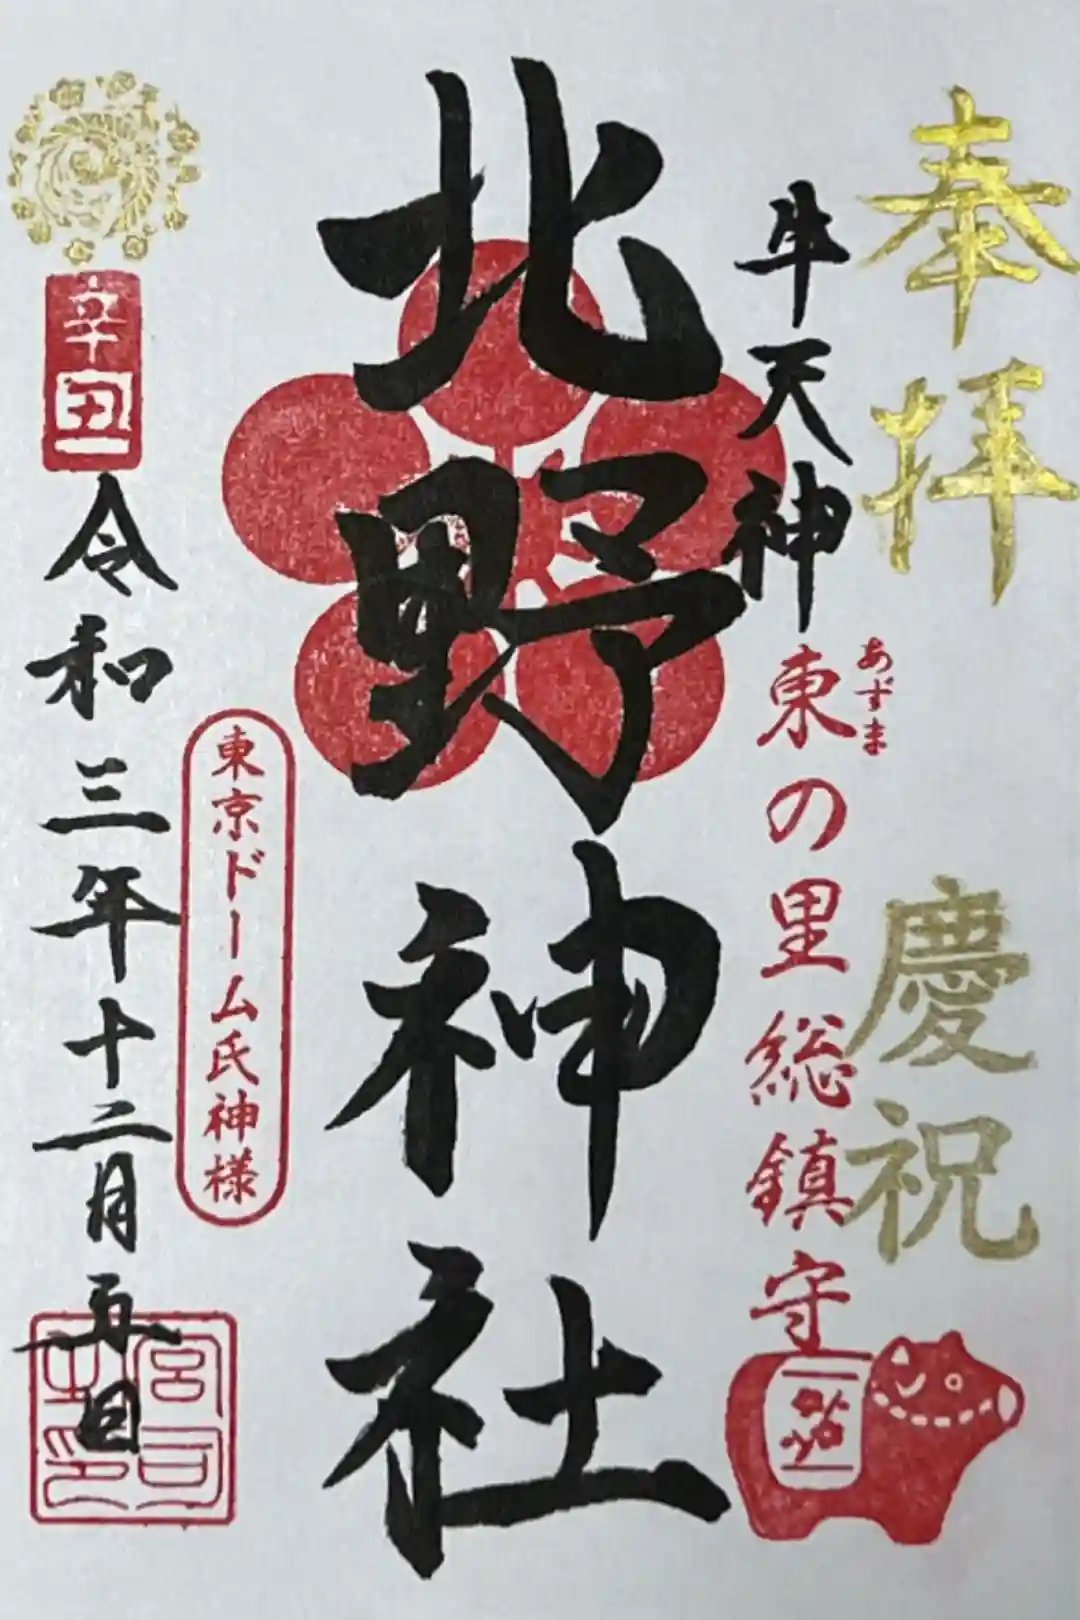 奉拝
慶祝
牛天神
あずま
東の里総鎮守
北野神社
東京ドーム氏神様
辛丑
令和三年十二月五日
宮司之印